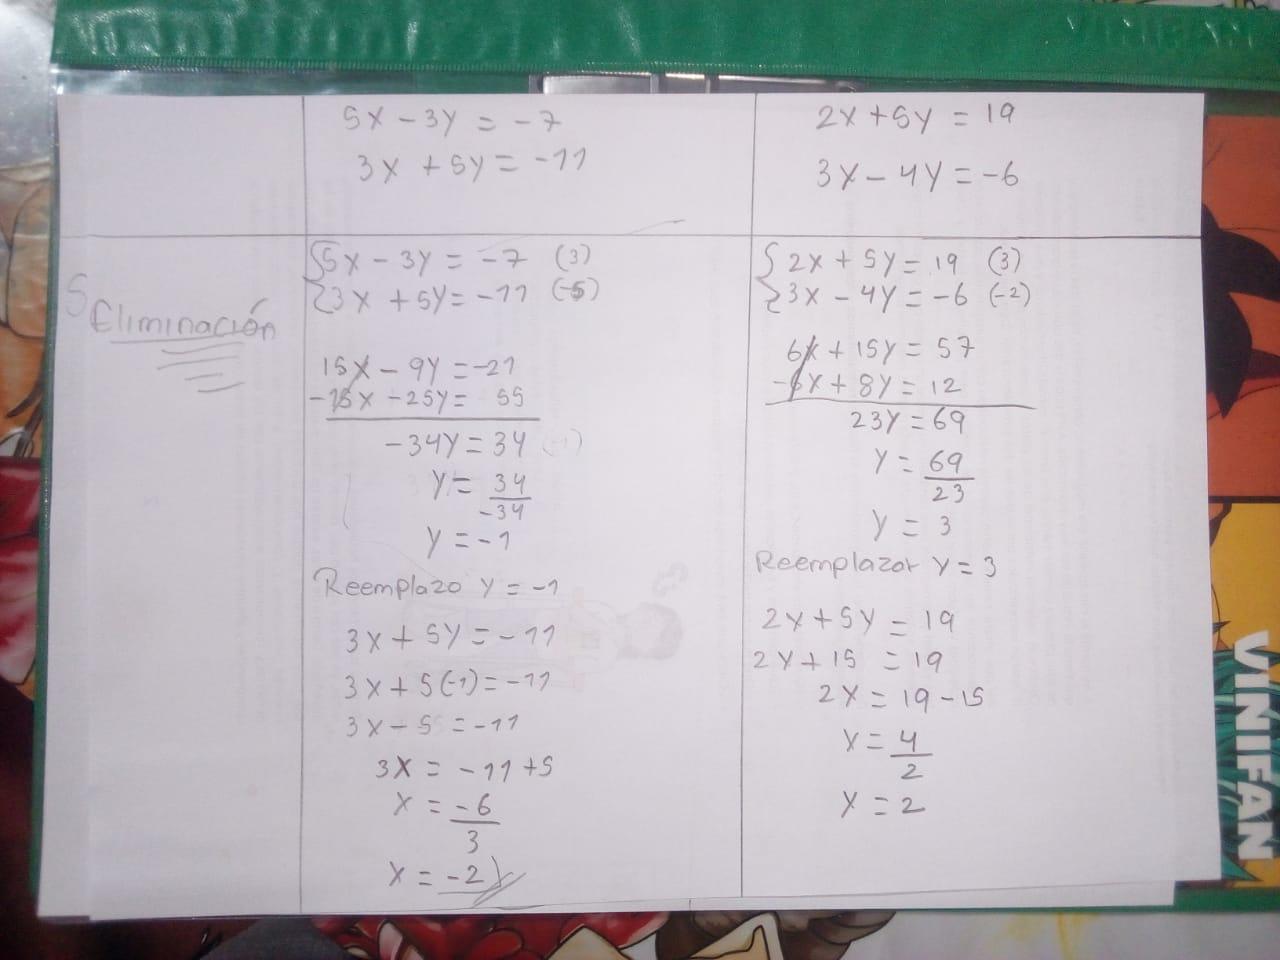 VINIFAN
5x - 3y = -7
3x + 5y = -11
2x + 5y = 19
3x - 4y = -6
Eliminación
5x - 3y = -7 (3)
3x + 5y = -11 (-5)
15x - 9y = -21
-15x - 25y = 55
-34y = 34 (-1)
y = 34
-34
y = -1
Reemplazo y = -1
3x + 5y = -11
3x + 5(-1) = -11
3x - 5 = -11
3x = -11 + 5
x = -6
3
x = -2
2x + 5y = 19 (3)
3x - 4y = -6 (-2)
6x + 15y = 57
-6x + 8y = 12
23y = 69
y = 69
23
y = 3
Reemplazar y = 3
2x + 5y = 19
2x + 15 = 19
2x = 19 - 15
x = 4
2
x = 2
VINIFAN